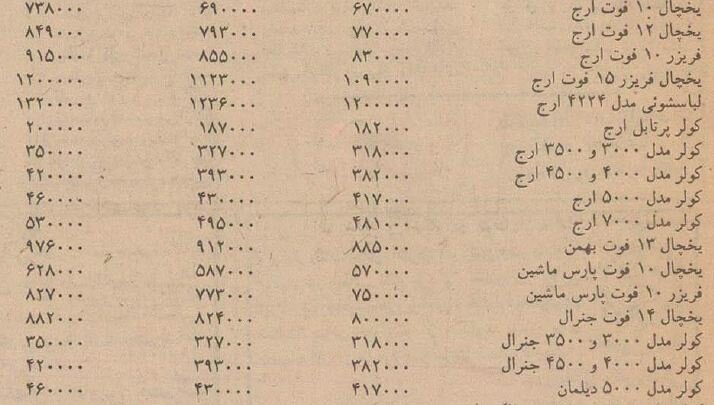 یخچال ۱۰ فوت ارج ۶۷۰۰۰۰ ۶۹۰۰۰۰ ۷۳۸۰۰۰
یخچال ۱۲ فوت ارج ۷۷۰۰۰۰ ۷۹۳۰۰۰ ۸۴۹۰۰۰
فریزر ۱۰ فوت ارج ۸۳۰۰۰۰ ۸۵۵۰۰۰ ۹۱۵۰۰۰
یخچال فریزر ۱۵ فوت ارج ۱۰۹۰۰۰۰ ۱۱۲۳۰۰۰ ۱۲۰۰۰۰۰
لباسشوئی مدل ۴۲۲۴ ارج ۱۲۰۰۰۰۰ ۱۲۳۶۰۰۰ ۱۳۲۰۰۰۰
کولر پرتابل ارج ۱۸۲۰۰۰ ۱۸۷۰۰۰ ۲۰۰۰۰۰
کولر مدل ۳۰۰۰ و ۳۵۰۰ ارج ۳۱۸۰۰۰ ۳۲۷۰۰۰ ۳۵۰۰۰۰
کولر مدل ۴۰۰۰ و ۴۵۰۰ ارج ۳۸۲۰۰۰ ۳۹۳۰۰۰ ۴۲۰۰۰۰
کولر مدل ۵۰۰۰ ارج ۴۱۷۰۰۰ ۴۳۰۰۰۰ ۴۶۰۰۰۰
کولر مدل ۷۰۰۰ ارج ۴۸۱۰۰۰ ۴۹۵۰۰۰ ۵۳۰۰۰۰
یخچال ۱۳ فوت بهمن ۸۸۵۰۰۰ ۹۱۲۰۰۰ ۹۷۶۰۰۰
یخچال ۱۰ فوت پارس ماشین ۵۷۰۰۰۰ ۵۸۷۰۰۰ ۶۲۸۰۰۰
فریزر ۱۰ فوت پارس ماشین ۷۵۰۰۰۰ ۷۷۳۰۰۰ ۸۲۷۰۰۰
یخچال ۱۴ فوت جنرال ۸۰۰۰۰۰ ۸۲۴۰۰۰ ۸۸۲۰۰۰
کولر مدل ۳۰۰۰ و ۳۵۰۰ جنرال ۳۱۸۰۰۰ ۳۲۷۰۰۰ ۳۵۰۰۰۰
کولر مدل ۴۰۰۰ و ۴۵۰۰ جنرال ۳۸۲۰۰۰ ۳۹۳۰۰۰ ۴۲۰۰۰۰
کولر مدل ۵۰۰۰ دیلمان ۴۱۷۰۰۰ ۴۳۰۰۰۰ ۴۶۰۰۰۰